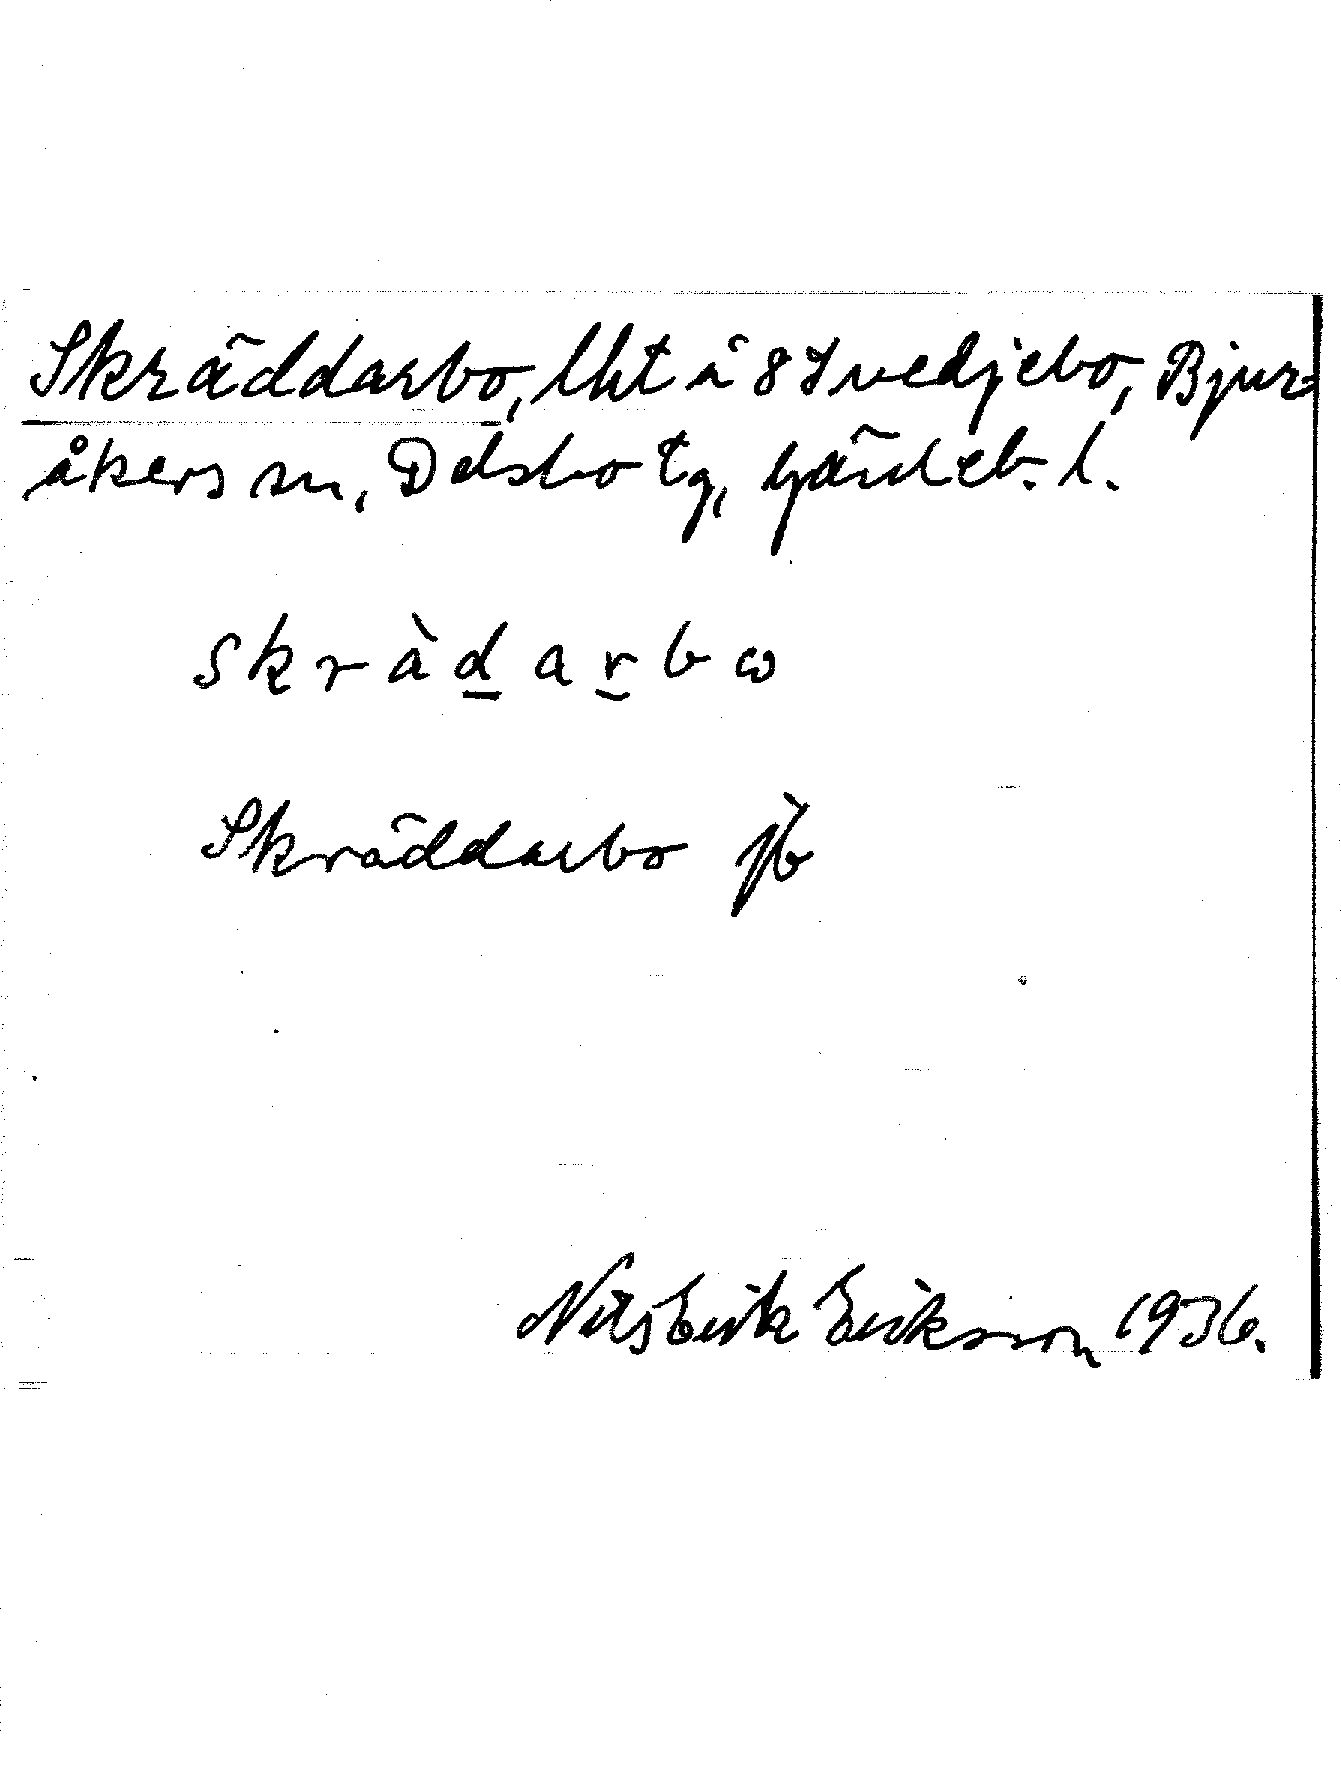 Skräddarbo, lht å 8 Svedjebo, Bjur-
åkers sn, Delsbo tg, Gävleb. l.
skràdarbω
Skräddarbo jb
Nils Erik Eriksson 1936.